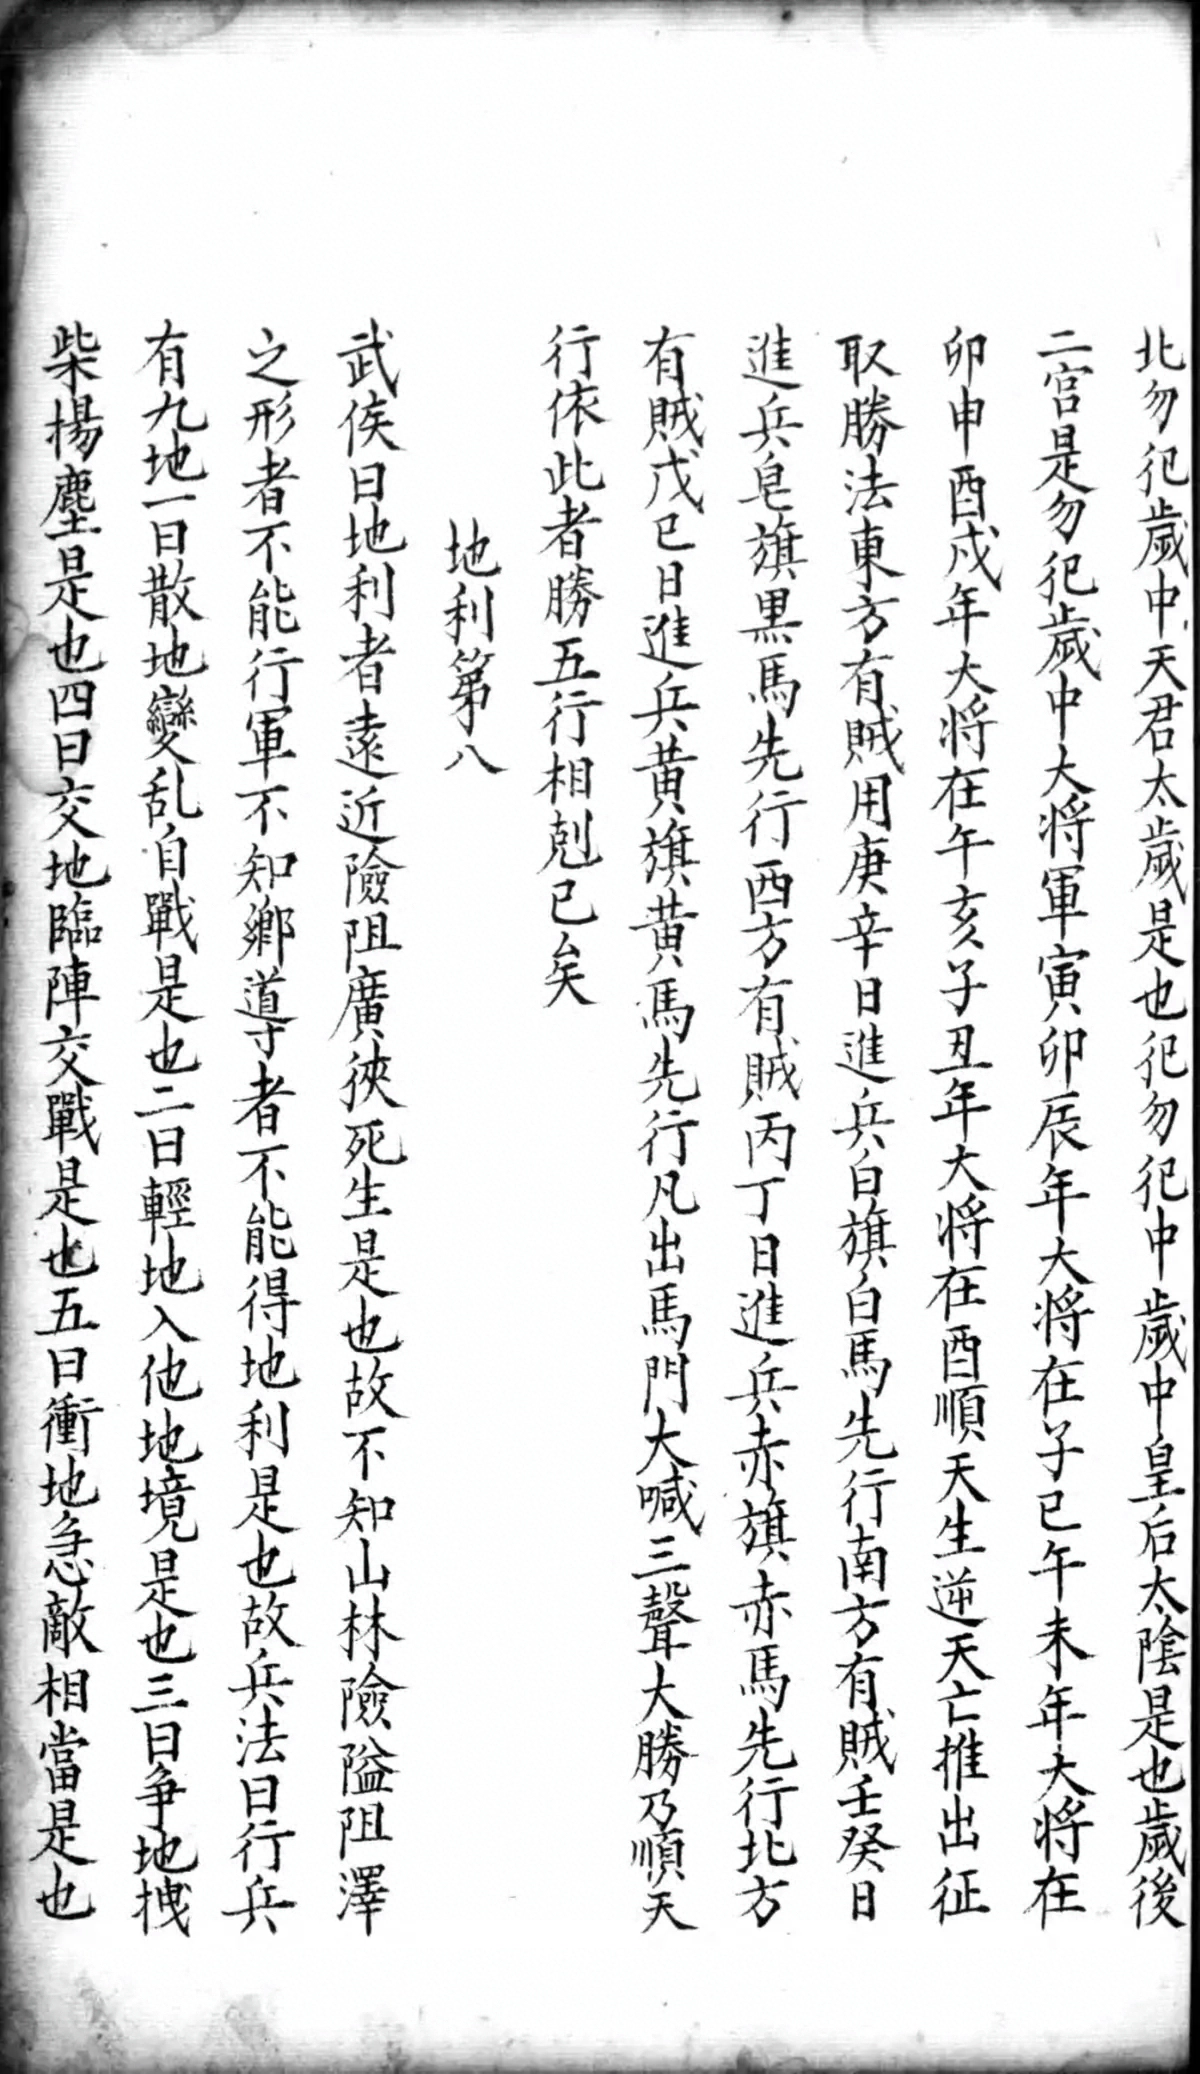 北勿犯歲中天君太歲是也犯勿犯中歲中皇后太陰是也歲後
二宮是勿犯歲中大将軍寅卯辰年大将在子巳午未年大将在
卯申酉戌年大将在午亥子丑年大将在酉順天生逆天亡推出征
取勝法東方有賊用庚辛日進兵白旗白馬先行南方有賊壬癸日
進兵皂旗黒馬先行西方有賊丙丁日進兵赤旗赤馬先行北方
有賊戊己日進兵黄旗黄馬先行凡出馬門大喊三聲大勝乃順天
行依此者勝五行相剋已矣
地利第八
武侯曰地利者遠近險阻廣狹死生是也故不知山林險隘阻澤
之形者不能行軍不知鄉導者不能得地利是也故兵法曰行兵
有九地一曰散地變乱自戰是也二曰輕地入他地境是也三曰争地拽
柴揚塵是也四曰交地臨陣交戰是也五曰衝地急敵相當是也